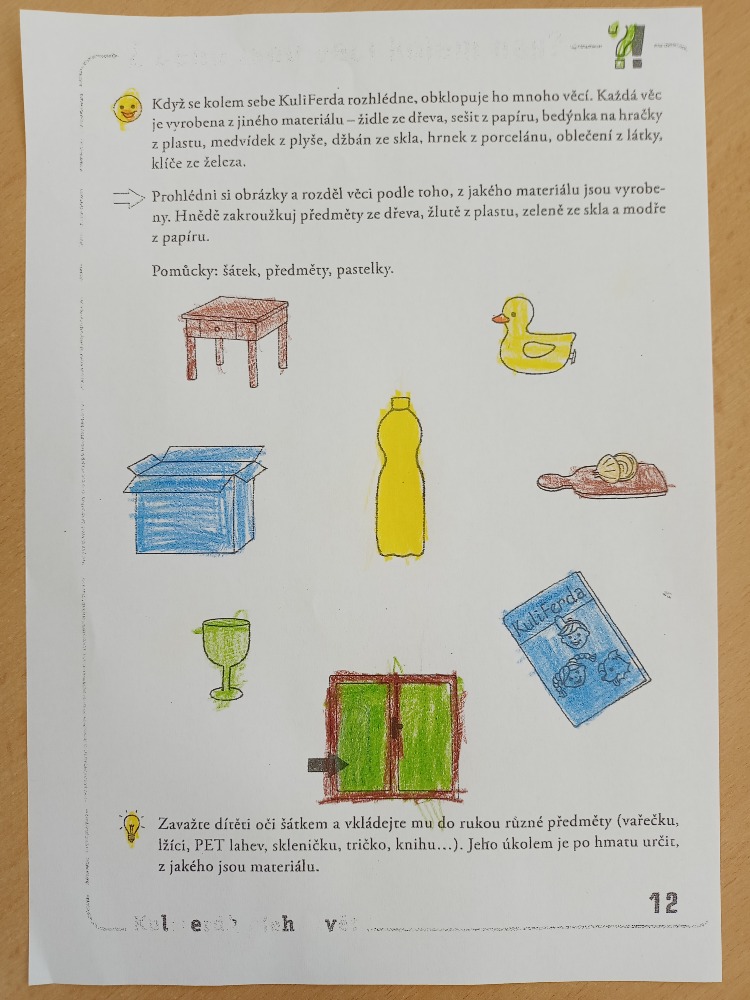 Když se kolem sebe KuliFerda rozhlédne, obklopuje ho mnoho věcí. Každá věc
je vyrobena z jiného materiálu – židle ze dřeva, sešit z papíru, bedýnka na hračky
z plastu, medvídek z plyše, džbán ze skla, hrnek z porcelánu, oblečení z látky,
klíče ze železa.
Prohlédni si obrázky a rozděl věci podle toho, z jakého materiálu jsou vyrobe-
ny. Hnědě zakroužkuj předměty ze dřeva, žlutě z plastu, zeleně ze skla a modře
z papíru.
Pomůcky: šátek, předměty, pastelky.
KuliFerda
Zavažte dítěti oči šátkem a vkládejte mu do rukou různé předměty (vařečku,
lžíci, PET lahev, skleničku, tričko, knihu...). Jeho úkolem je po hmatu určit,
z jakého jsou materiálu.
12